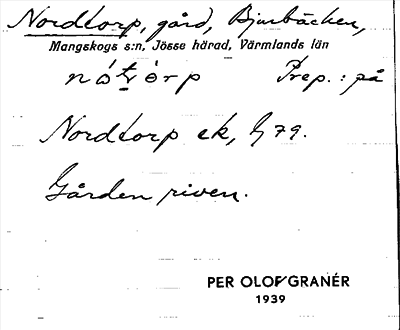 Nordtorp, gård, Bjurbäcken,
Mangskogs s:n, Jösse härad, Värmlands län
Prep.: på
Nordtorp ek, 79.
Gården riven.
PER OLOF GRANÉR
1939